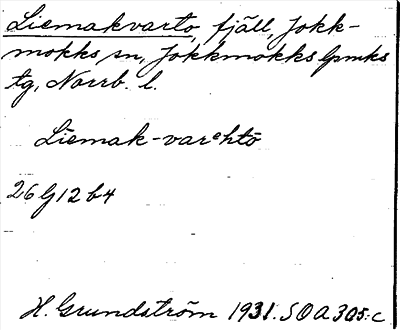 Liemakvarto, fjäll, Jokk-
mokks sn, Jokkmokks lpmks
tg, Norrb. l.
Liemak-varᵉhtō
26 G 12 b 4
H. Grundström 1931. SOA 305:c